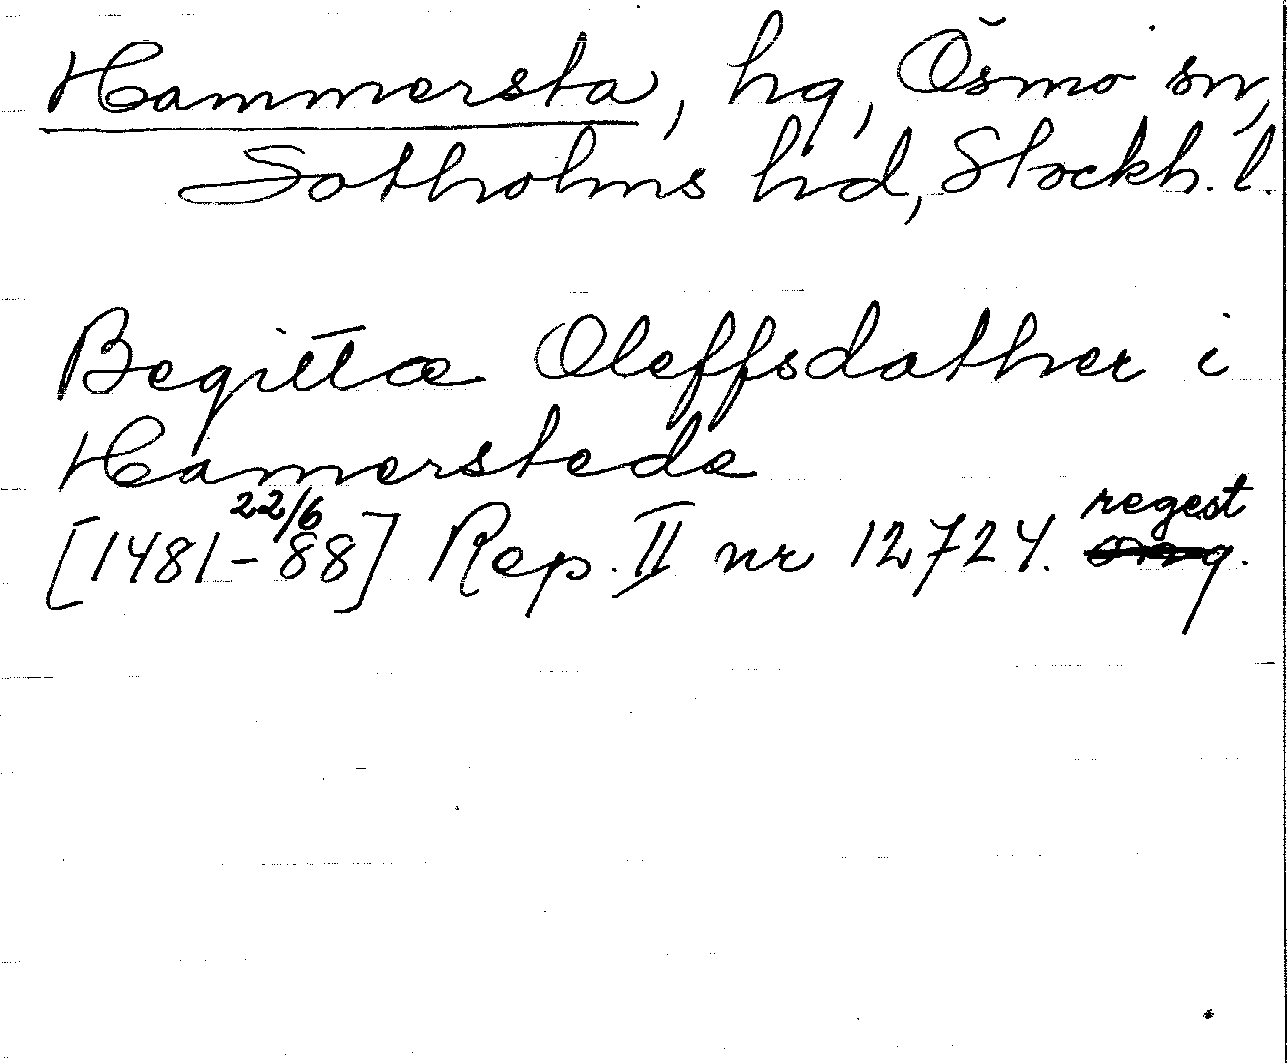 Hammersta, hg, Ösmo sn,
Sotholms hd, Stockh. l.
Begittæ Oleffsdather i
Hamerstede
22/6 regest
[1481-88] Rep. II nr 12724.